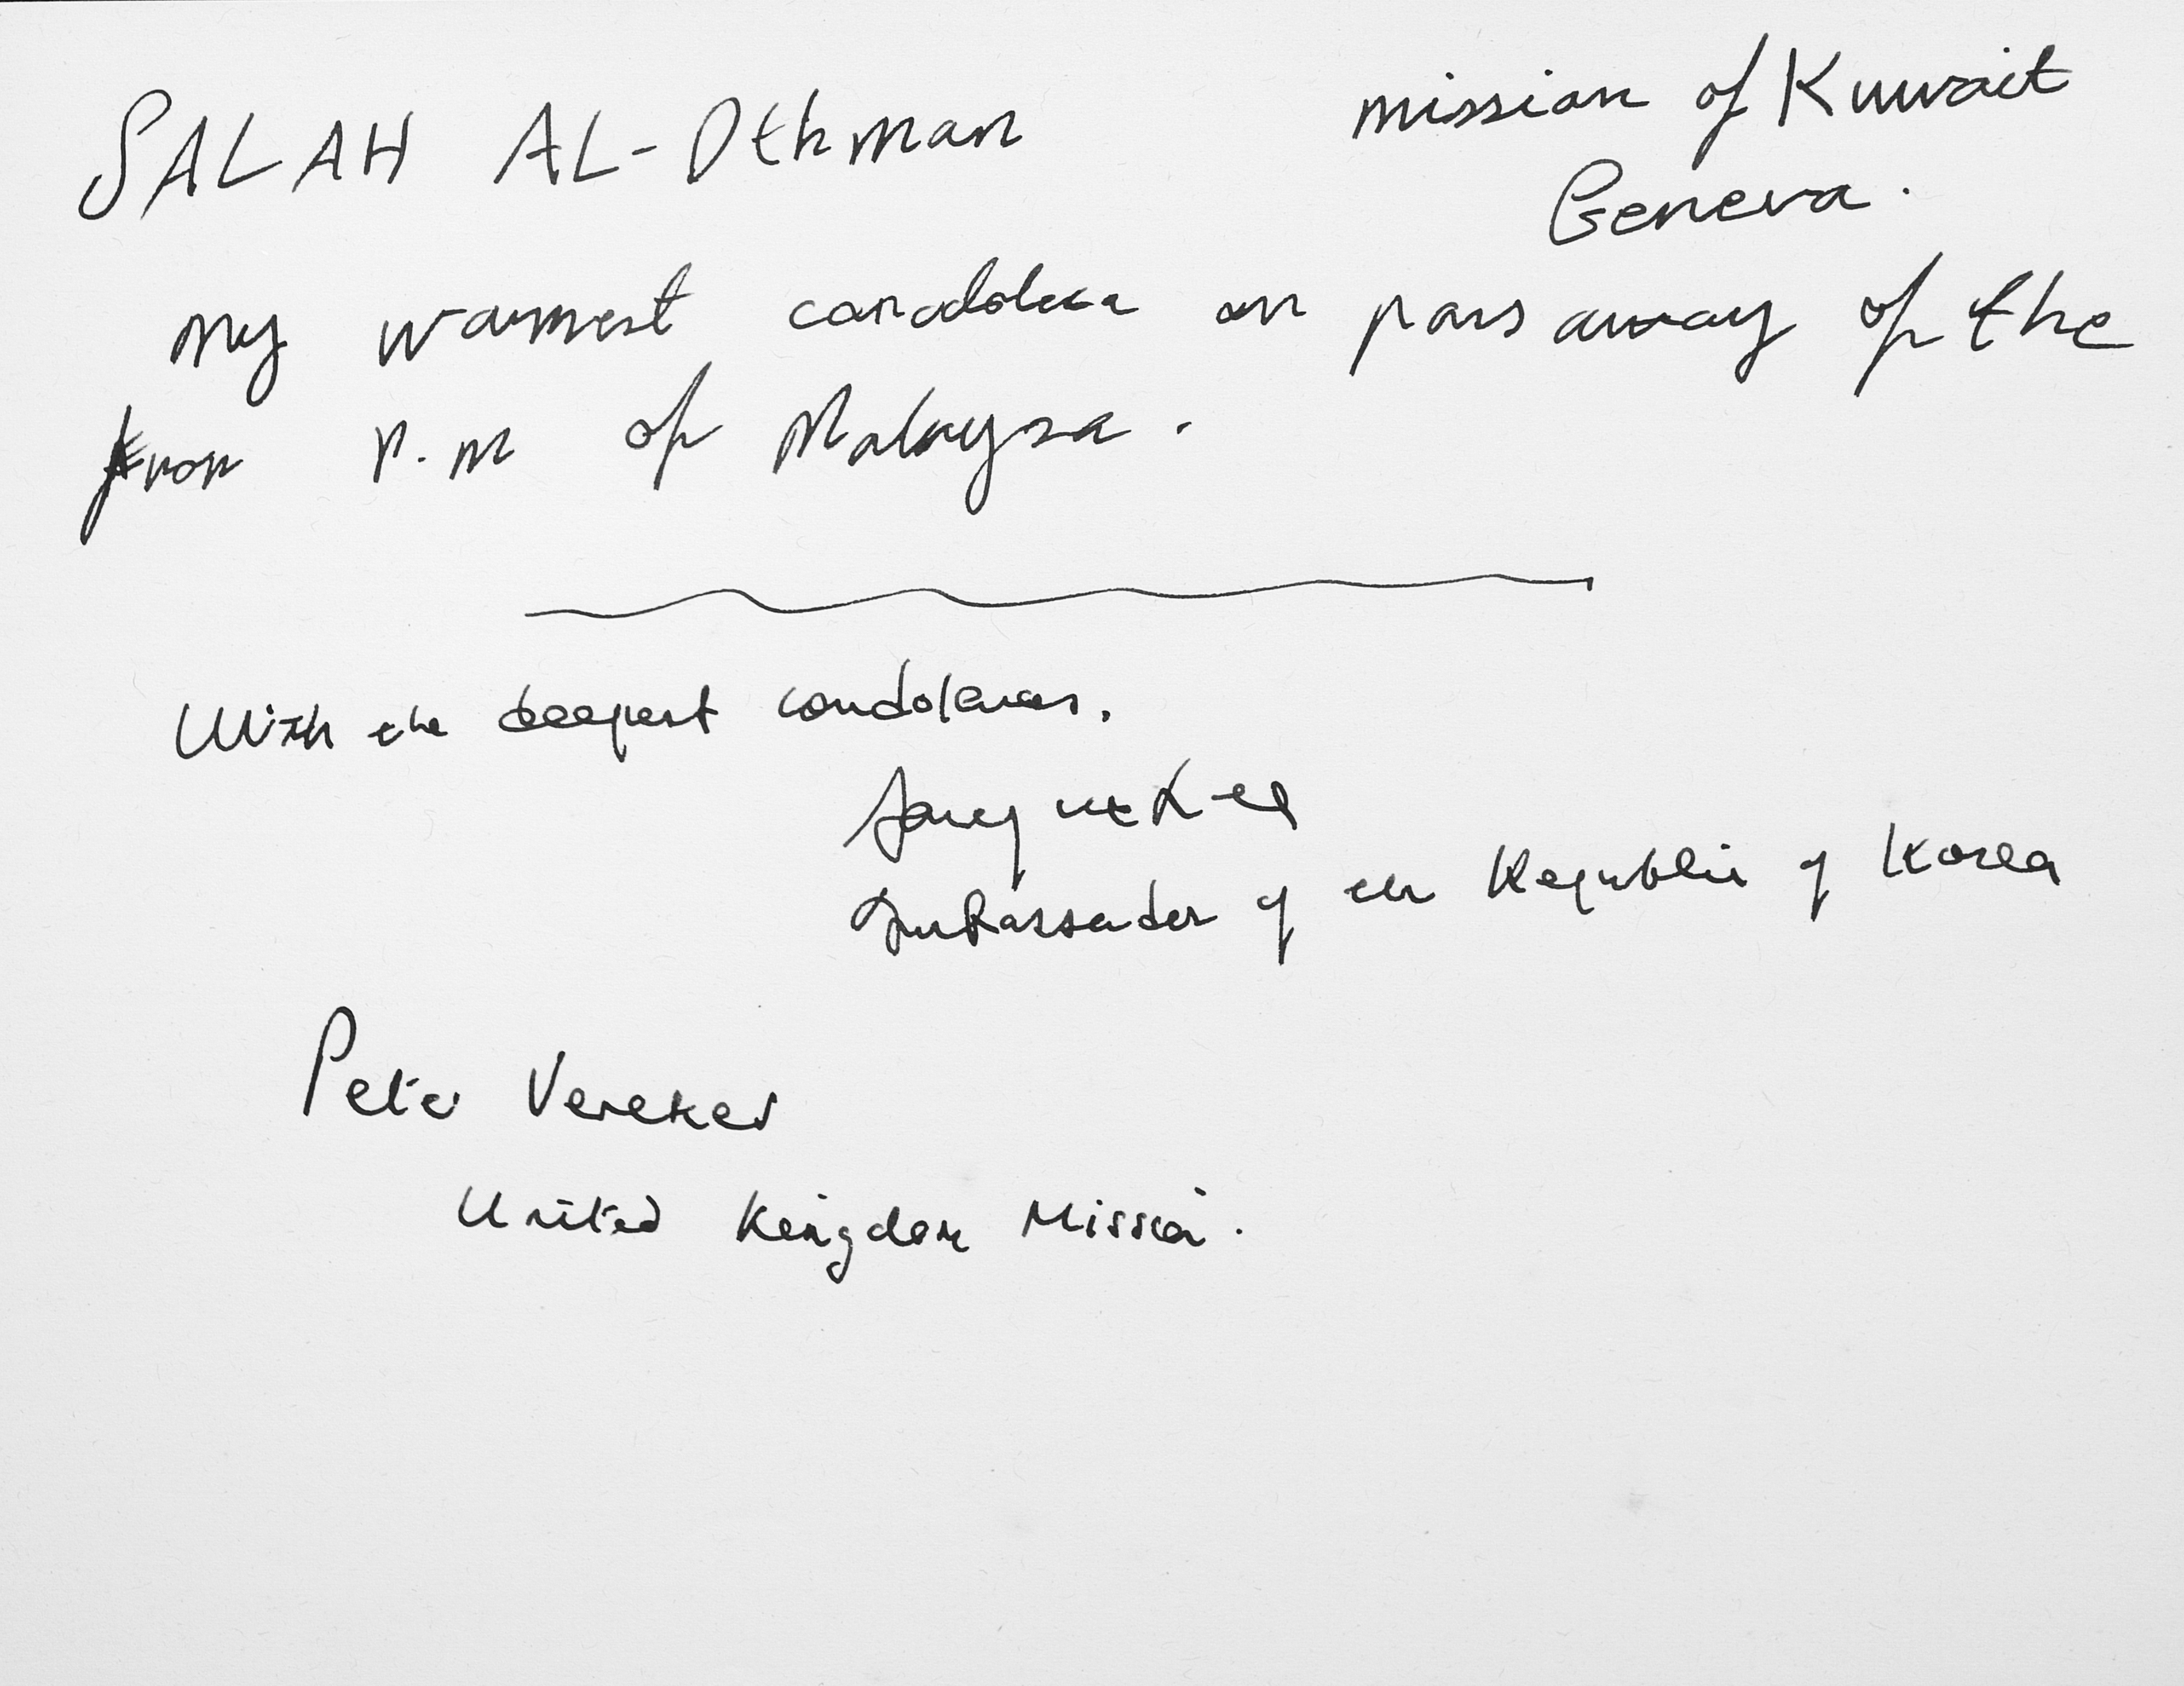 SALAH AL-Othman
mission of Kuwait
Geneva.
my warmest condolence on pass away of the
P.M of Malaysa.
With the deepest condolences.
Ambassador of the Republic of Korea
Peter Vereker
United Kingdom Mission.